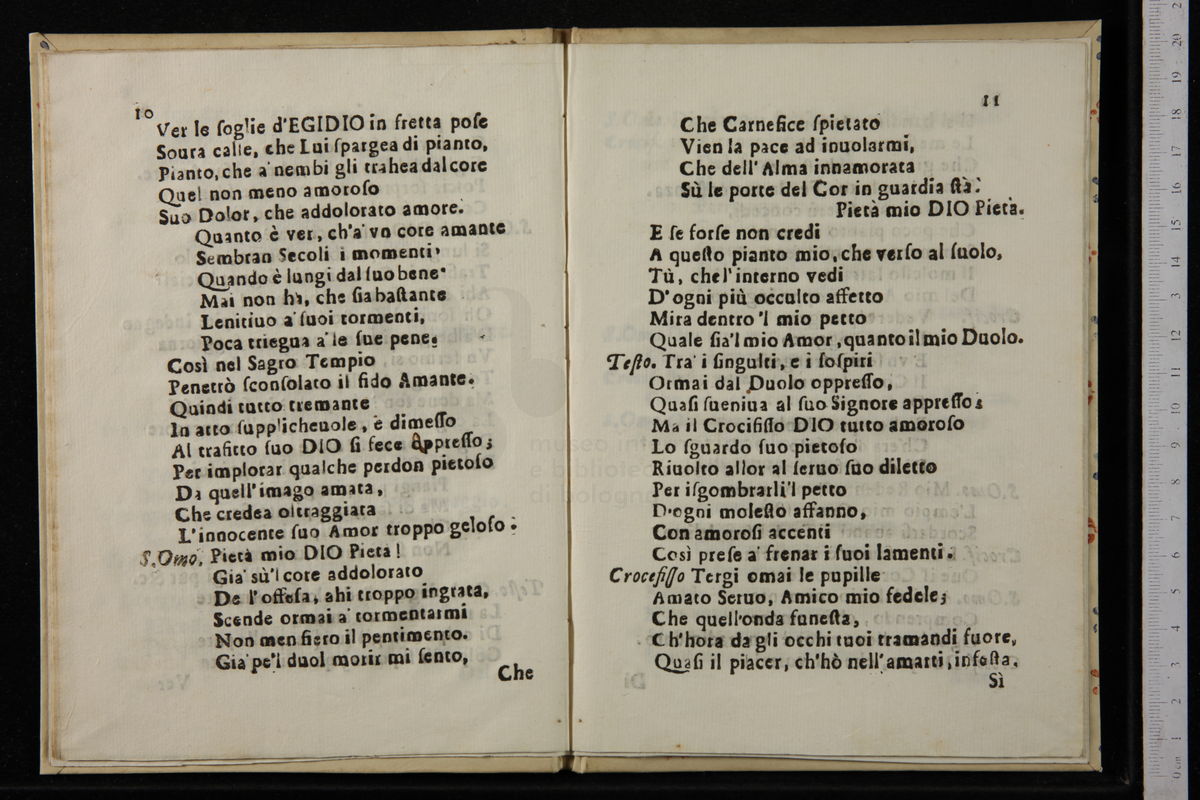 10
Ver le ſoglie d'EGIDIO in fretta poſe
Soura calle, che Lui ſpargea di pianto,
Pianto, che a' nembi gli trahea dal core
Quel non meno amoroſo
Suo Dolor, che addolorato amore.
Quanto è ver, ch'a' vn core amante
Sembran Secoli i momenti
Quando è lungi dal ſuo bene
Mai non hà, che ſia baſtante
Lenitiuo a' ſuoi tormenti,
Poca triegua a' le ſue pene.
Così nel Sagro Tempio
Penetrò ſconſolato il fido Amante.
Quindi tutto tremante
In atto ſupplicheuole, e dimeſſo
Al trafitto ſuo DIO ſi fece appreſſo;
Per implorar qualche perdon pietoſo
Da quell'imago amata,
Che credea oltraggiata
L'innocente ſuo Amor troppo geloſo.
S. Omo. Pietà mio DIO Pietà!
Gia' sù'l core addolorato
De l'offeſa, ahi troppo ingrata,
Scende ormai a' tormentarmi
Non men fiero il pentimento.
Gia' pe'l duol morir mi ſento,
Che
11
Che Carnefice ſpietato
Vien la pace ad inuolarmi,
Che dell'Alma innamorata
Sù le porte del Cor in guardia ſtà.
Pietà mio DIO Pietà.
E ſe forſe non credi
A queſto pianto mio, che verſo al ſuolo,
Tù, che l'interno vedi
D'ogni più occulto affetto
Mira dentro 'l mio petto
Quale ſia'l mio Amor, quanto il mio Duolo.
Teſto. Tra' i ſingulti, e i ſoſpiri
Ormai dal Duolo oppreſſo,
Quaſi ſueniua al ſuo Signore appreſſo;
Ma il Crocifiſſo DIO tutto amoroſo
Lo ſguardo ſuo pietoſo
Riuolto allor al ſeruo ſuo diletto
Per iſgombrarli'l petto
D'ogni moleſto affanno,
Con amoroſi accenti
Così preſe a' frenar i ſuoi lamenti.
Crocefiſſo Tergi omai le pupille
Amato Seruo, Amico mio fedele;
Che quell'onda funeſta,
Ch'hora da gli occhi tuoi tramandi fuore,
Quaſi il piacer, ch'hò nell'amarti, infeſta.
Sì